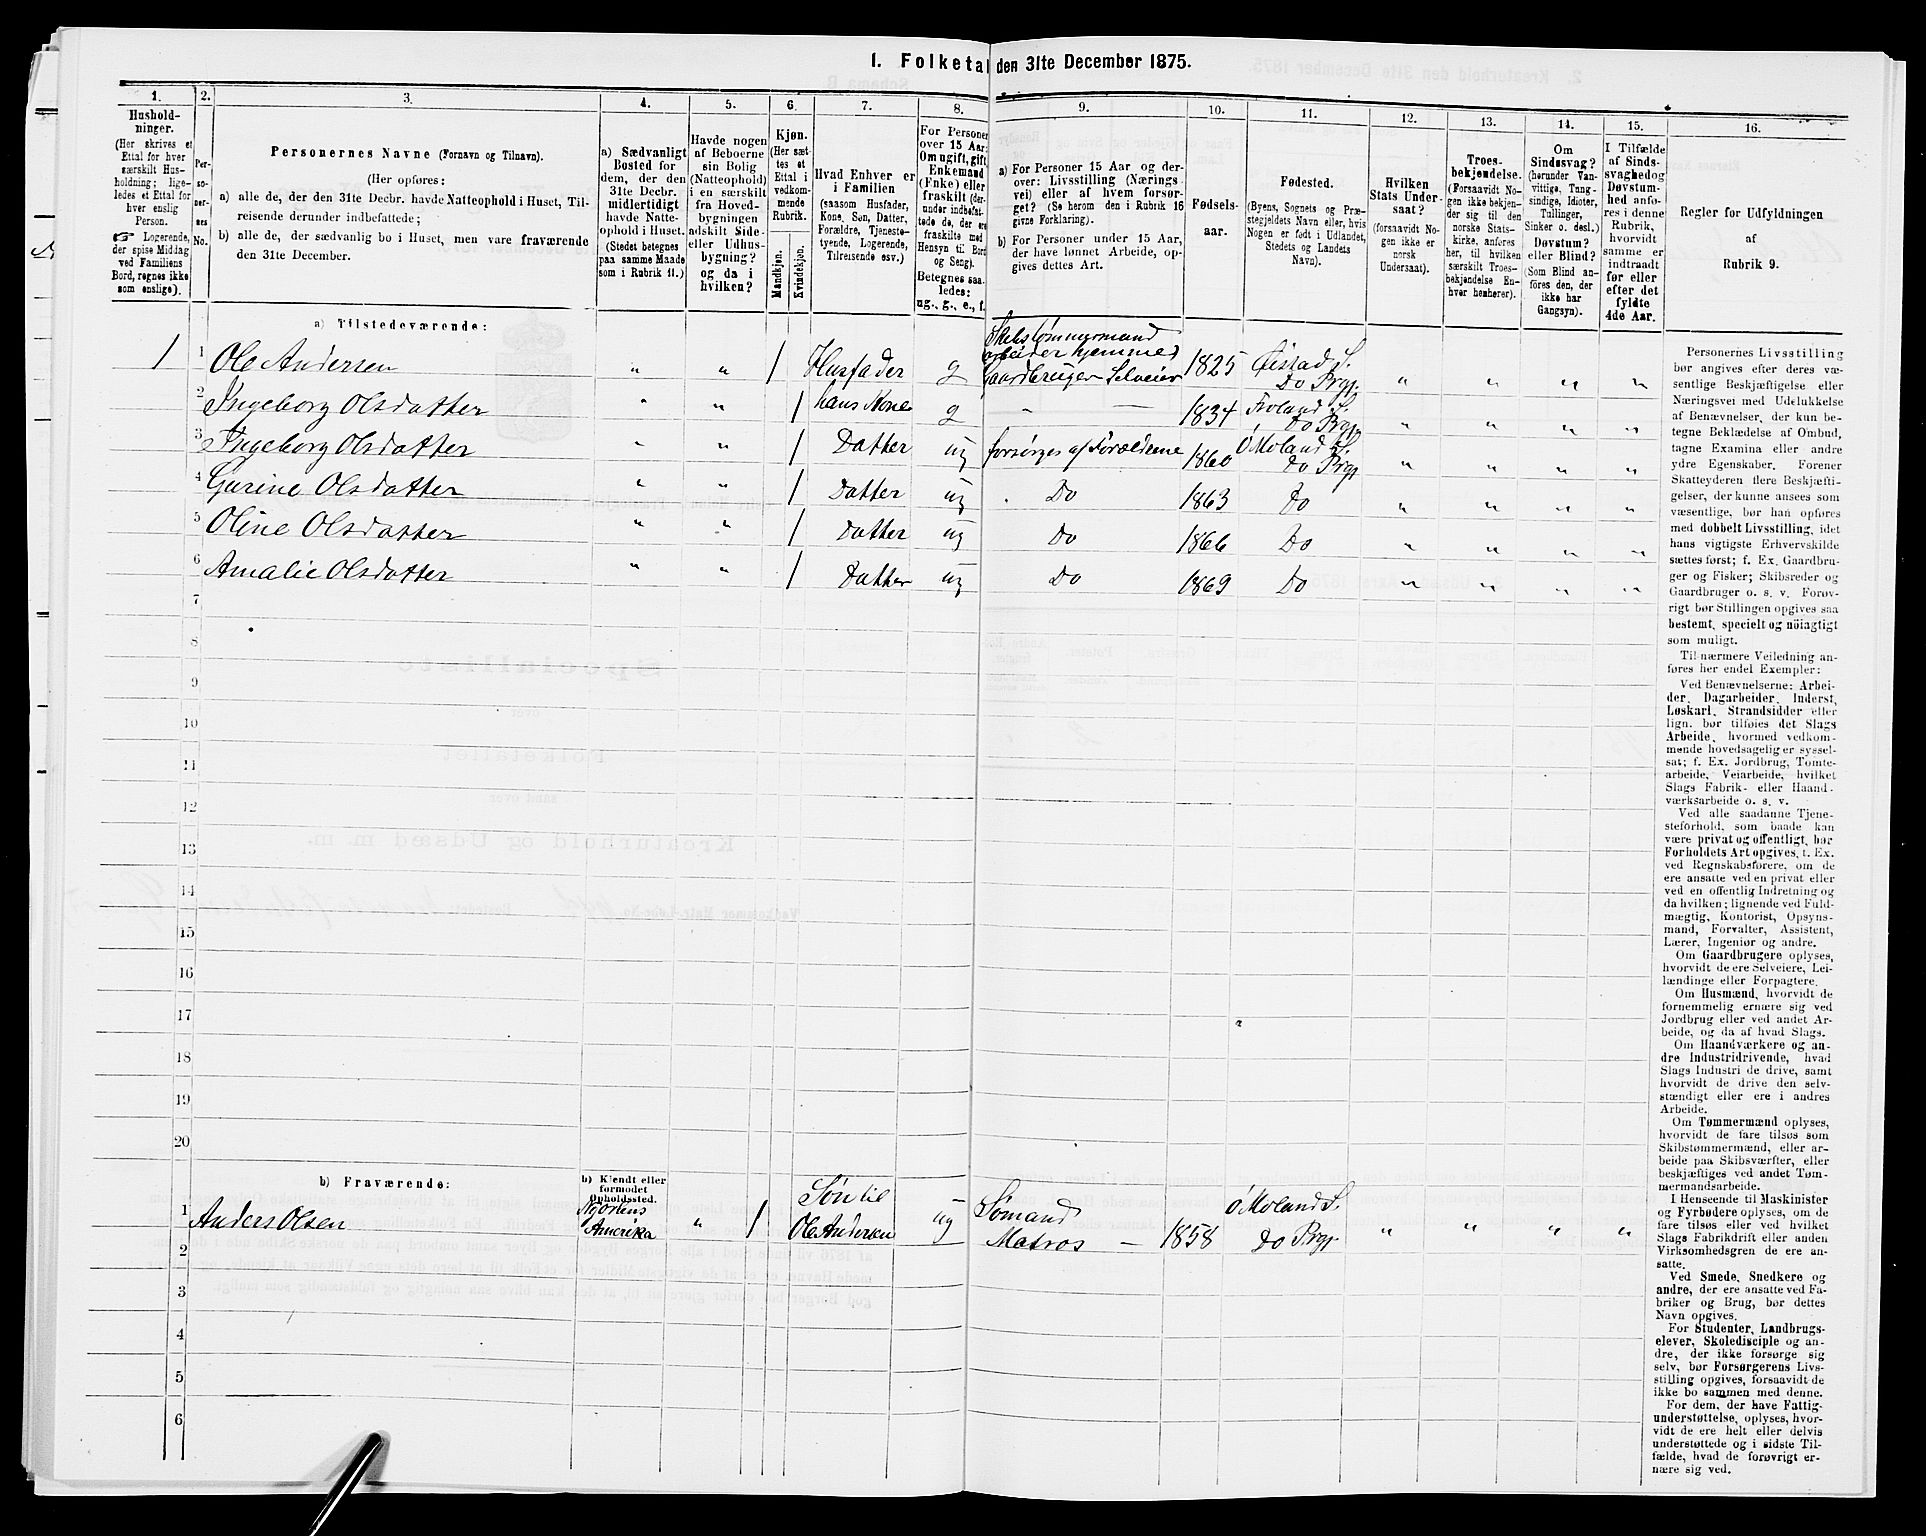 1. Folketal den 31te December 1875.
1. 2. 3. 4. 5. 6. 7. 8. 9. 10. 11. 12. 13. 14. 15. 16.
Hushold-
ninger.
(Her skrives et
Ettal for hver
særskilt Hus-
holdning; lige-
ledes et Ettal for
hver enslig
Person.
☞ Logerende,
der spise Middag
ved Familiens
Bord, regnes ikke
som enslige).
Per-
so-
ner-
nes
No.
Personernes Navne (Fornavn og Tilnavn).
(Her opføres:
a) alle de, der den 31te Decbr. havde Natteophold i Huset, Til-
reisende derunder indbefattede;
b) alle de, der sædvanlig bo i Huset, men vare fraværende
den 31te December.
a) Sædvanligt
Bosted for
dem, der den
31te Decbr.
midlertidigt
havde Natte-
ophold i Huset.
(Stedet betegnes
paa samme Maade
som i Rubrik 11.)
Havde nogen
af Beboerne
sin Bolig
(Natteophold)
i en særskilt
fra Hoved-
bygningen
adskilt Side-
eller Udhus-
bygning?
og da i
hvilken?
Kjøn.
(Her sæt-
tes et
Ettal i
vedkom-
mende
Rubrik.
Mandkjøn.
Kvindekjøn.
Hvad Enhver er
i Familien
(saasom Husfader,
Kone, Søn, Datter,
Forældre, Tjeneste-
tyende, Logerende,
Tilreisende osv.)
For Personer
over 15 Aar:
Om ugift, gift,
Enkemand
(Enke) eller
fraskilt (der-
under indbefat-
tede de, der ere
fraskilte med
Hensyn til Bord
og Seng).
Betegnes saa-
ledes:
ug., g., e., f.
a) For Personer 15 Aar og der-
over: Livsstilling (Nærings-
vei) eller af hvem forsør-
get? (Se herom den i Rubrik 16
givne Forklaring).
b) For Personer under 15 Aar,
der have lønnet Arbeide, op-
gives dettes Art.
Fødsels-
aar.
Fødested.
(Byens, Sognets og Præ-
stegjeldets Navn eller, hvis
Nogen er født i Udlandet,
Stedets og Landets
Navn).
Hvilken
Stats Under-
saat?
(forsaavidt No-
gen ikke er
norsk
Undersaat).
Troes-
bekjendelse.
(Forsaavidt No-
gen ikke bekjen-
der sig til den
norske Stats-
kirke, anføres
her, til hvilken
særskilt Troes-
bekjendelse En-
hver henhører).
Om
Sindssvag?
(herunder Van-
vittige, Tung-
sindige, Idioter,
Tullinger,
Sinker o. desl.)
Døvstum?
eller Blind?
(Som Blind an-
føres den, der
ikke har
Gangsyn).
I Tilfælde
af Sinds-
svaghed og
Døvstum-
hed anfø-
res i denne
Rubrik,
hvorvidt
samme er
indtraadt
før eller
efter det
fyldte
4de Aar.
Regler for Udfyldningen
af
Rubrik 9.
a) Tilstedeværende:
1 1 Ole Andersen " " 1 Husfader g Skibstømmermand
arbeider hjemme
Gaardbruger Selveier 1825 Øistad S.
Do Prgj. " " " "
2 Ingeborg Olsdatter " " 1 hans Kone g " — 1834 Froland S.
Do Prgj. " " " "
3 Ingeborg Olsdatter " " 1 Datter ug forsørges af Forældrene 1860 Ø Moland S.
Do Prgj. " " " "
4 Gurine Olsdatter " " 1 Datter ug Do 1863 Do " " " "
5 Oline Olsdatter " " 1 Datter ug Do 1866 Do " " " "
6 Amalie Olsdatter " " 1 Datter ug Do 1869 Do " " " "
7
8
9
10
11
12
13
14
15
16
17
18
19
20
b) Fraværende:
b) Kjendt eller
formodet
Opholdssted.
1 Anders Olsen Nordens
Amerika " 1 Søn til
Ole Andersen ug Sømand
Matros — 1858 Ø Moland S.
Do Prgj. " " " "
2
3
4
5
6
Personernes Livsstilling
bør angives efter deres væ-
sentlige Beskjæftigelse eller
Næringsvei med Udelukkelse
af Benævnelser, der kun be-
tegne Beklædelse af Ombud,
tagne Examina eller andre
ydre Egenskaber. Forener
Skatteyderen flere Beskjæfti-
gelser, der kunne ansees som
væsentlige, bør han opføres
med dobbelt Livsstilling, idet
hans vigtigste Erhvervskilde
sættes først; f. Ex. Gaardbru-
ger og Fisker; Skibsreder og
Gaardbruger o. s. v. Forøv-
rigt bør Stillingen opgives saa
bestemt, specielt og nöiagtigt
som muligt.
Til nærmere Veiledning an-
føres her endel Exempler:
Ved Benævnelserne: Arbei-
der, Dagarbeider, Inderst,
Løskarl, Strandsidder eller
lign. bør tilføies det Slags
Arbeide, hvormed vedkom-
mende hovedsagelig er syssel-
sat; f. Ex. Jordbrug, Tomte-
arbeide, Veiarbeide, hvilket
Slags Fabrik- eller Haand-
værksarbeide o. s. v.
Ved alle saadanne Tjene-
steforhold, som baade kan
være privat og offentligt, bør
Forholdets Art opgives, t. Ex.
ved Regnskabsførere, om de
ere ansatte ved en privat eller
ved en offentlig Indretning og
da hvilken; lignende ved Fuld-
mægtig, Kontorist, Opsyns-
mand, Forvalter, Assistent,
Lærer, Ingeniør og andre.
Om Gaardbrugere oplyses,
hvorvidt de ere Selveiere, Lei-
lændinge eller Forpagtere.
Om Husmænd, hvorvidt de
fornemmelig ernære sig ved
Jordbrug eller ved andet Ar-
beide, og da af hvad Slags.
Om Haandværkere og an-
dre Industridrivende, hvad
Slags Industri de drive, samt
hvorvidt de drive den selv-
stændigt eller ere i andres
Arbeide.
Om Tømmermænd oplyses,
hvorvidt de fare tilsøs som
Skibstømmermænd, eller ar-
beide paa Skibsværfter, eller
beskjæftiges ved andet Tøm-
mermandsarbeide.
I Henseende til Maskinister
og Fyrbødere oplyses, om de
fare tilsøs eller ved hvilket
Slags Fabrikdrift eller anden
Virksomhedsgren de ere an-
satte.
Ved Smede, Snedkere og
andre, der ere ansatte ved Fa-
briker og Brug, bør dettes
Navn opgives.
For Studenter, Landbrugs-
elever, Skoledisciple og an-
dre, der ikke forsørge sig
selv, bør Forsørgerens Livs-
stilling opgives, forsaavidt de
ikke bo sammen med denne.
For dem, der have Fattig-
understøttelse, oplyses, hvor-
vidt de ere helt eller delvis
understøttede og i sidste Til-
fælde, hvad de forøvrigt er-
nære sig ved.